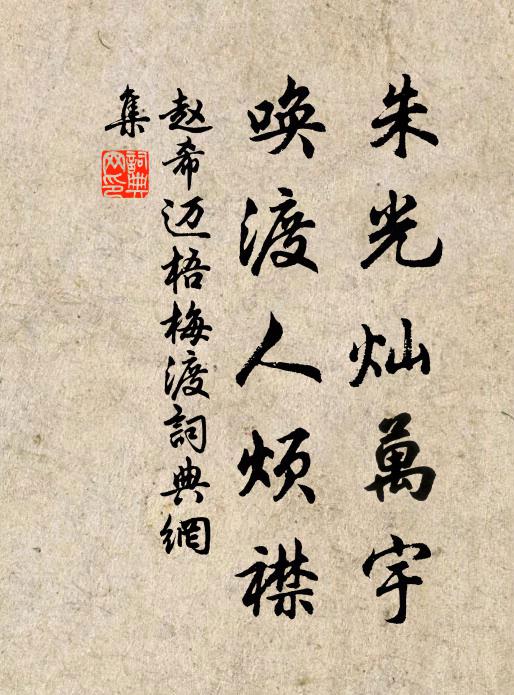 朱光灿萬宇
唤渡人烦襟
赵希迈梧梅渡詞典網
集
詞典網印